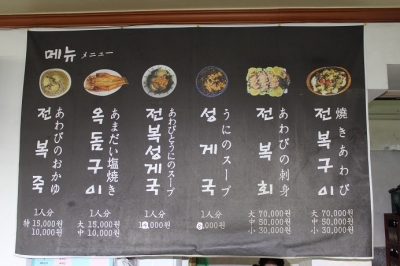 메뉴 メニュー
전복죽
あわびのおかゆ
1人分
特 15,000원
10,000원
옥돔구이
あまだい塩焼き
1人分
大 15,000원
中 10,000원
전복성게국
あわびとうにのスープ
1人分
성게국
うにのスープ
1人分
전복회
あわびの刺身
大 70,000원
中 50,000원
小 30,000원
전복구이
焼きあわび
大 70,000원
中 50,000원
小 30,000원